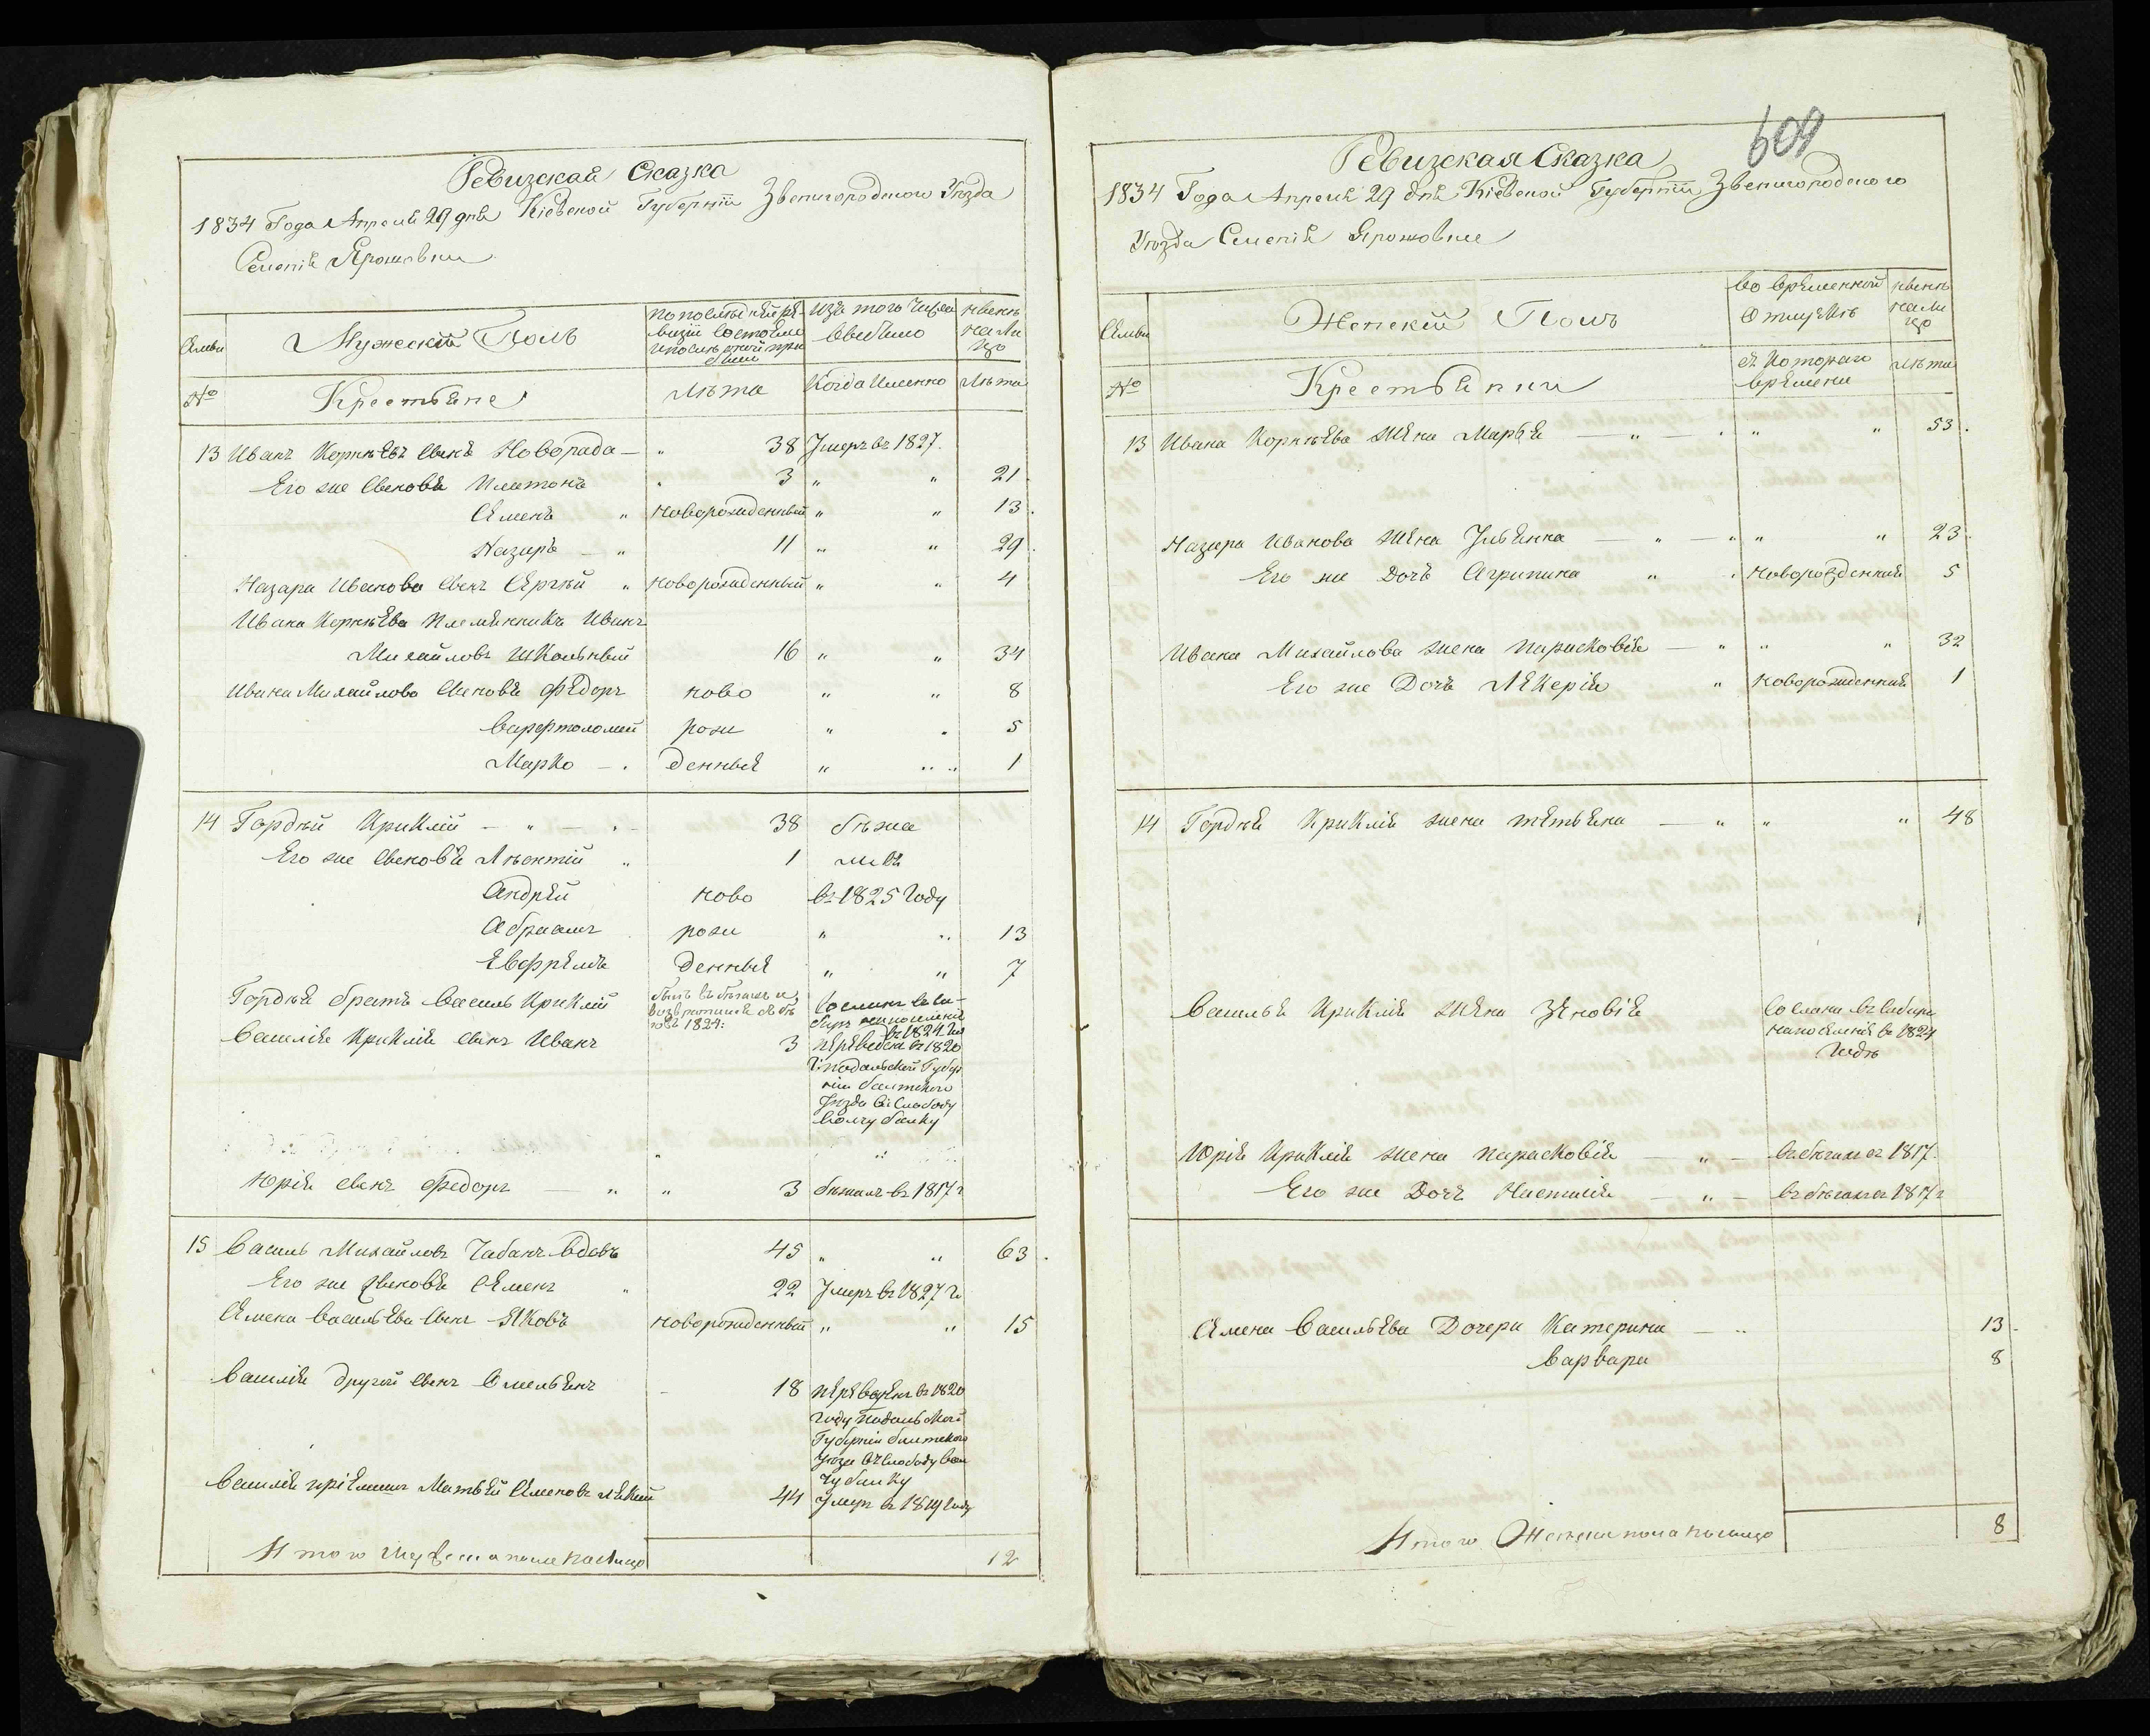 Ревизская Сказка
1834 Года Апреля 29 дня Кіевской Губерніи Звенигородского Уезда
Селенія Ярошовки
Семьи
Мужескій Полъ
По последней ре-
визіи состояло
и после оной при
было
Изъ того числа
выбыло
Ныне
на ли
цо
№
Крестьяне
Лѣта
Когда именно
Лѣта
13 Иванъ Корнѣевъ сынъ Новорада — " 38 Умеръ въ 1827.
Его же сыновья Платонъ " 3 " " 21.
Семенъ " новорожденный " " 13.
Назаръ — " 11 " " 29.
Назара Иванова сынъ Сергѣй " новорожденный " " 4
Ивана Корнѣева племянникъ Иванъ
Михайловъ Школьный 16 " " 34
Ивана Михайлова сыновья Федоръ ново " " 8
Варфтоломей рож " " 5
Марко — . денные " " 1
14 Гордѣй Криклій — " — . 38 бѣжа
Его же сыновья Лѣонтій " 1 ли въ
Андрей ново въ 1825 Году
Абрамъ рож " " 13
Евфремъ денные " " 7
Гордѣя братъ Василь Криклій былъ въ бѣгахъ и
возвратился
1824: Сосланъ въ Си-
биръ на поселеніе
въ 1824 Го
Василія Криклія сынъ Иванъ 3 переведенъ въ 1820
Г: подольской Губер
ніи балтского
Уезда въ Слободу
Волчу балку
Юрія сынъ Федоръ — " " 3 бѣжалъ въ 1817 г
15 Василь Михайловъ Чабанъ вдовъ 45 " " 63.
Его же сыновья Семенъ " 22 Умеръ въ 1827 Го
Семена Васильева сынъ Яковъ новорожденный " " 15
Василія другой сынъ Омельянъ — 18 переведенъ въ 1820
Году Подольской
Губерніи балтского
Уезда въ Слободу Вол
чу балку
Василія пріемышъ Матвѣй Семеновъ 44 Умеръ въ 1819 Году
Итого Мужеска пола на лицо 12
609
Ревизская Сказка
1834 Года Апреля 29 дня Кіевской Губерніи Звенигородского
Уезда Селенія Ярошовки
Семьи
Женскій Полъ
Во временной
отлучкѣ
Ныне
на ли
цо
№
Крестьянки
съ котораго
времени
Лѣта
13 Ивана Корнѣева жена Марья — " — . " " 53.
Назара Иванова жена Ульянка — " — " " " 23.
Его же Дочь Агрипина " . новорожденная 5
Ивана Михайлова жена Парасковія — " " " 32
Его же Дочь Лекерія " новорожденная 1
14 Гордѣя Криклія жена Тетьяна — " " " 48
Василья Криклія жена Зеновія Сослана въ Сибиръ
на поселеніе въ 1824
Годѣ
Юрія Криклія жена Парасковія — " — въ бѣгахъ съ 1817.
Его же Дочъ Настасія — " — въ бѣгахъ съ 1817 г
Семена Васильева Дочери Катерина — " 13.
Варвара 8
Итого Женска пола на лицо 8